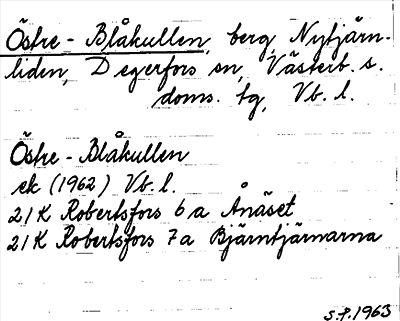 Östre-Blåkullen, berg, Nytjärn-
liden, Degerfors sn, Västerb. s.
doms. tg, Vb. l.
Östre-Blåkullen
ek (1962) Vb. l.
21K Robertsfors 6a Ånäset
21K Robertsfors 7a Bjärntjärnarna
S.P. 1963